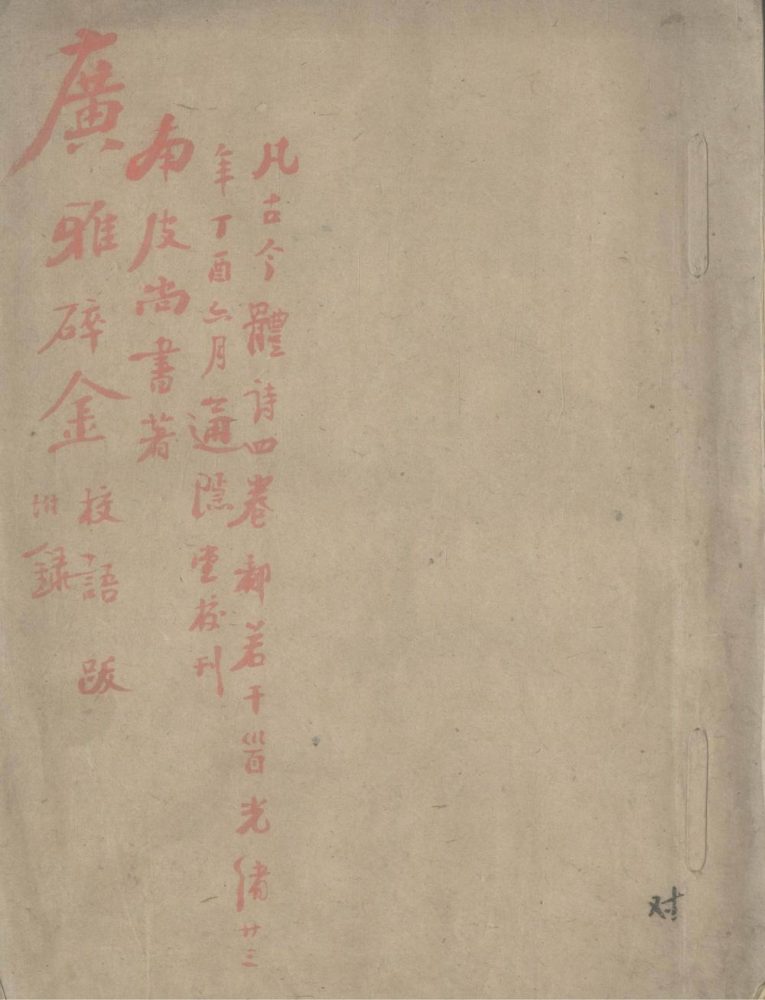 凡古今體詩四卷都若干首光緒廿三
年丁酉六月通隱堂校刊
南皮尚書著
廣雅碎金
校語 跋
附錄
对